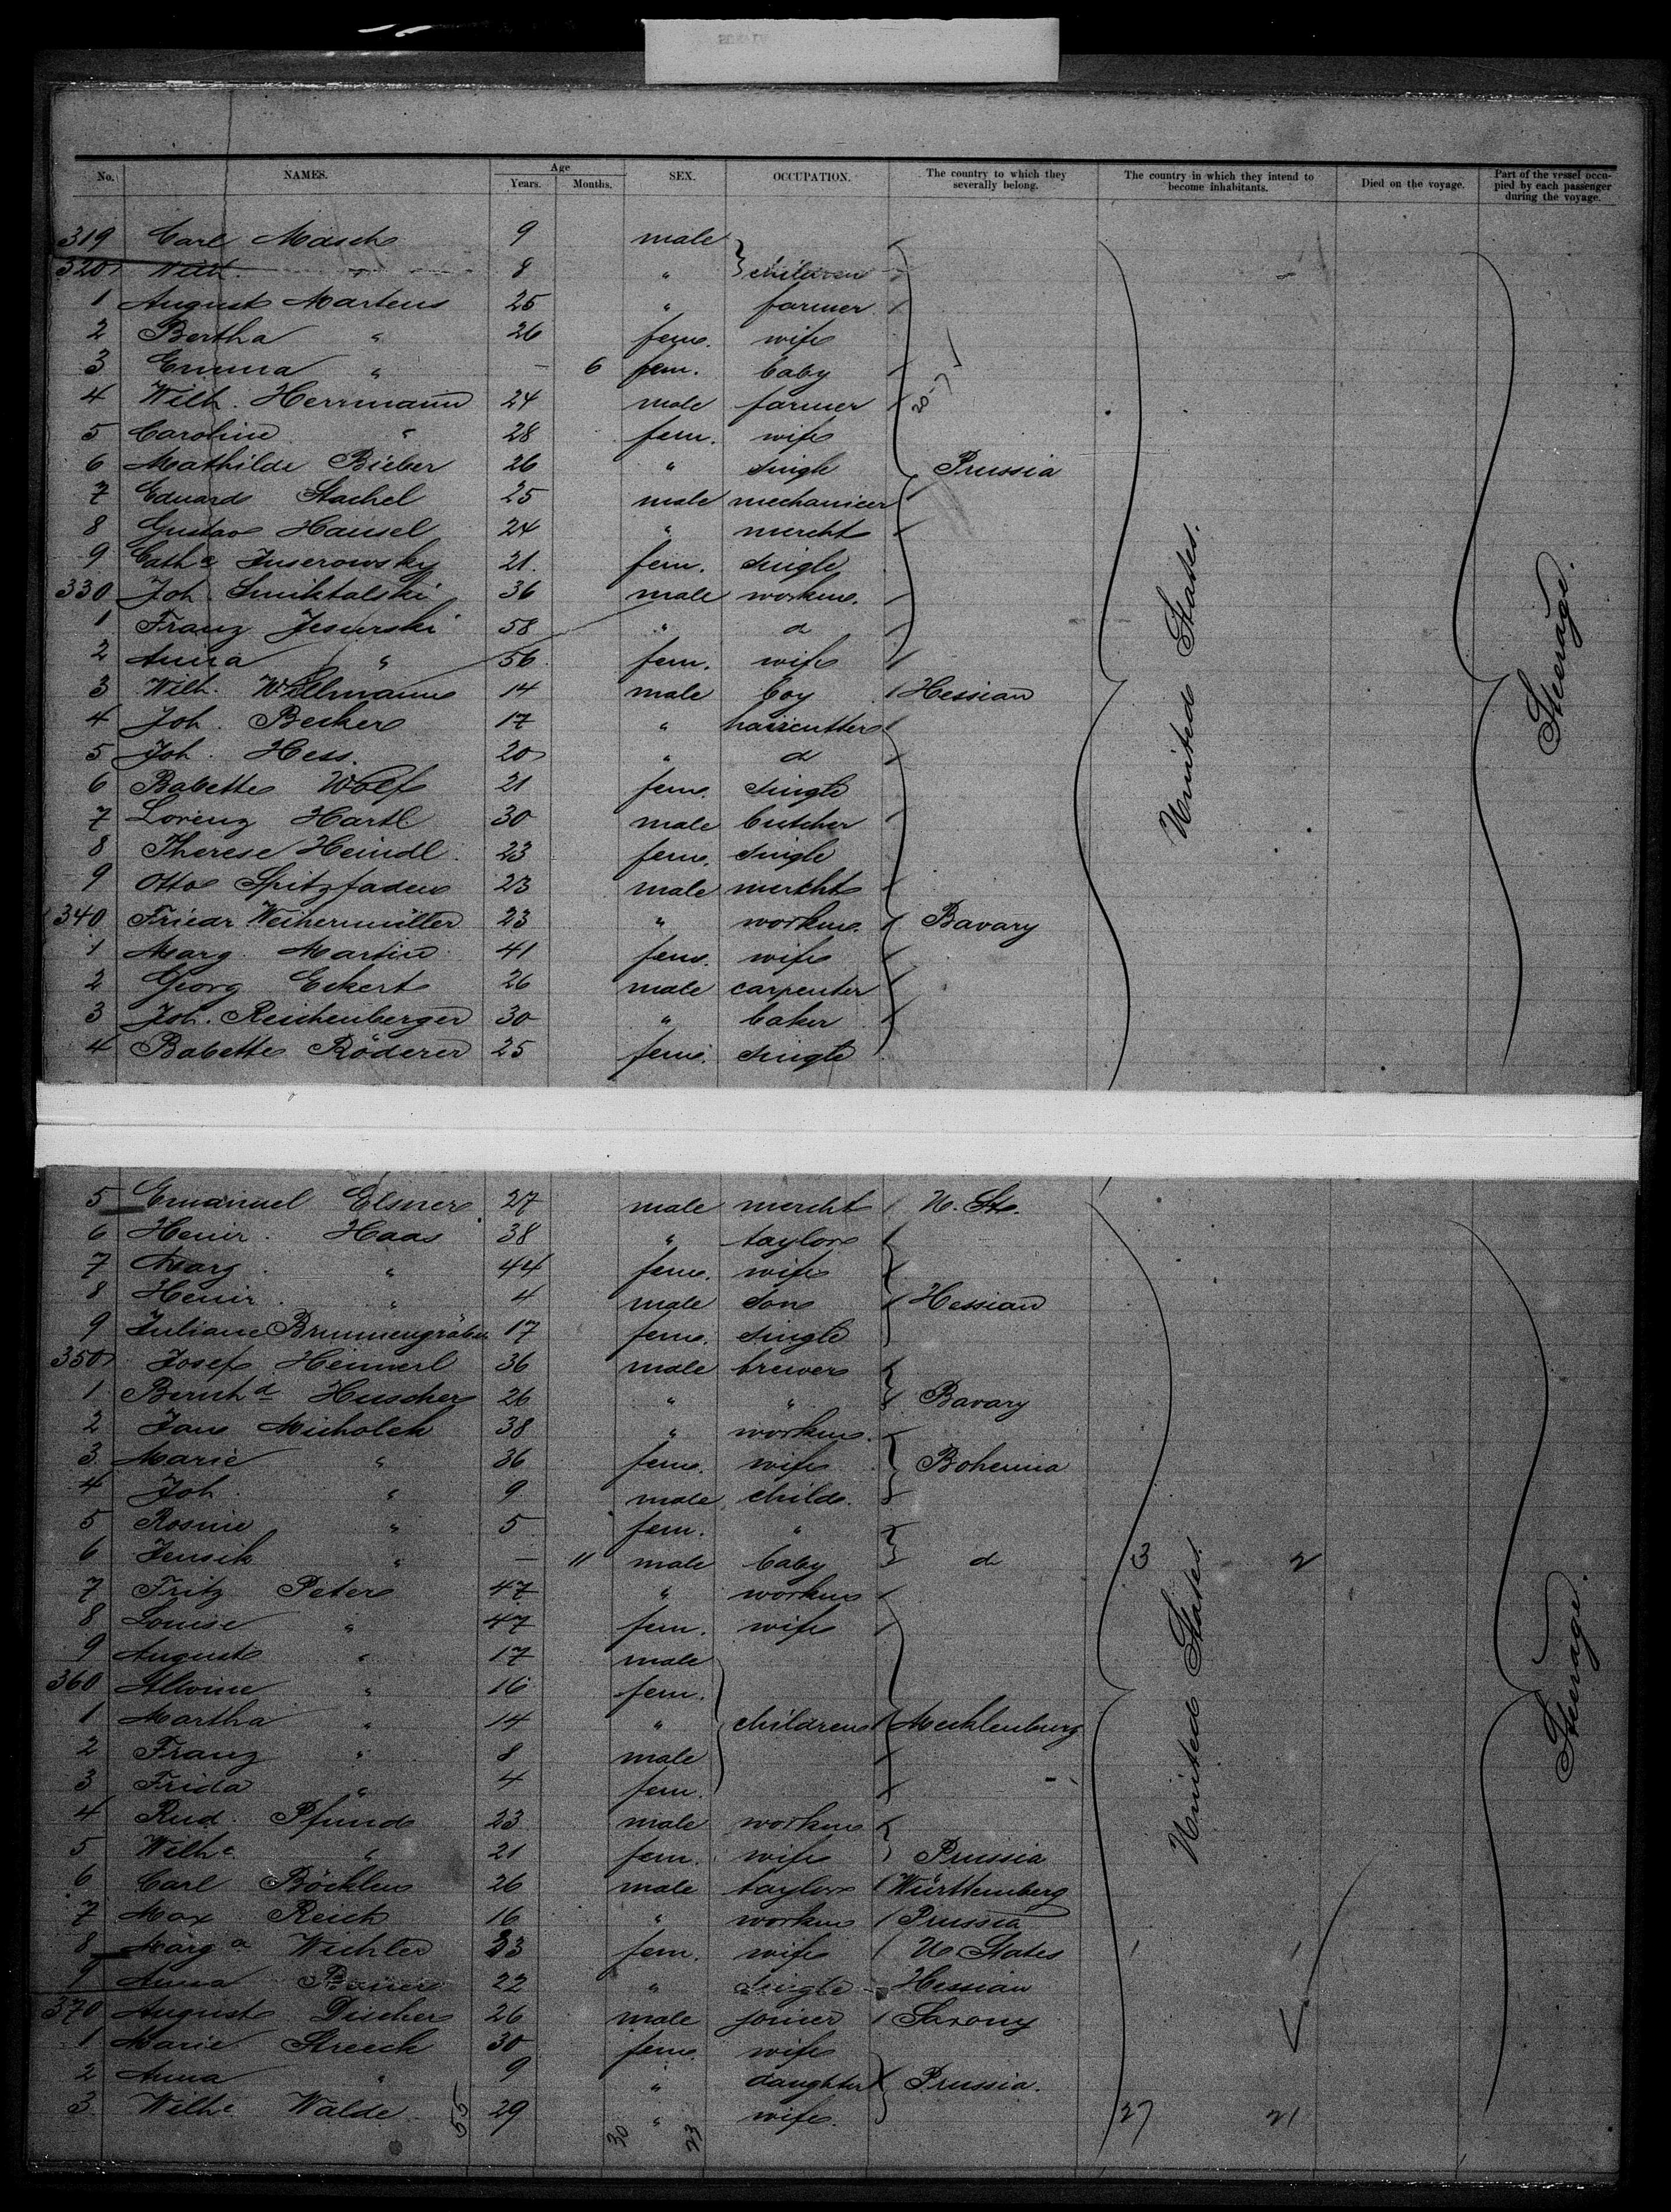 No. NAMES. Age Years. Months. SEX. OCCUPATION. The country to which they severally belong. The country in which they intend to become inhabitants. Died on the voyage. Part of the vessel occupied by each passenger during the voyage.
319 Carl Masch 9 male
320 " 8 " } children
1 August Martens 25 " farmer
2 Bertha " 26 fem. wife
3 Emma " — 6 fem. baby
4 Wilh. Herrmann 24 male farmer
5 Caroline " 28 fem. wife
6 Mathilde Bieber 26 " single Prussia
7 Eduard Stachel 25 male mechanicer
8 Gustav Hansel 24 " mercht
9 Cath. 21 fem. single
330 Joh. 36 male workm.
1 Franz 58 " d
2 Anna " 56 fem. wife
3 Wilh. Willmann 14 male boy Hessian
4 Joh. Becker 17 " haircutter
5 Joh. Hess. 20 " d
6 Babette Wolf 21 fem. single
7 Lorenz Hartl 30 male butcher
8 Therese Heindl 23 fem. single
9 Otto Spitzfaden 23 male mercht
340 Friedr. Weihermüller 23 " workm. Bavary
1 Marg. Martin 41 fem. wife
2 Georg Eckert 26 male carpenter
3 Joh. Reichenberger 30 " baker
4 Babette Röderer 25 fem. single
United States.
Steerage.
5 Emanuel Elsner 27 male mercht U. Sts.
6 Heinr. Haas 38 " taylor
7 Marg. " 44 fem. wife
8 Heinr. " 4 male son Hessian
9 Juliane Brunnengräber 17 fem. single
350 Josef Heimerl 36 male brewer
1 Bernhd Huscher 26 " " Bavary
2 Jan Micholek 38 " workm.
3 Marie " 36 fem. wife Bohemia
4 Joh. " 9 male child.
5 Rosine " 5 fem. "
6 " — 11 male baby d 3 2
7 Fritz Peter 47 " workm
8 Louise " 47 fem. wife
9 August " 17 male
360 Alwine " 16 fem.
1 Martha " 14 " children Mecklenburg
2 Franz " 8 male
3 Frida " 4 fem.
4 Rud. Pfund 23 male workm
5 Wilhe " 21 fem. wife Prussia
6 Carl Böcklen 26 male taylor Württemberg
7 Max Reich 16 " workm Prussia
8 Marga Wichler 33 fem. wife U States
9 Anna Bauer 22 " single Hessian
370 August Discher 26 male joiner Saxony
1 Marie Streeck 30 fem. wife
2 Anna " 9 " daughter Prussia.
3 Wilhe Walde 29 " wife. 27 21
55 30 23
United States.
Steerage.